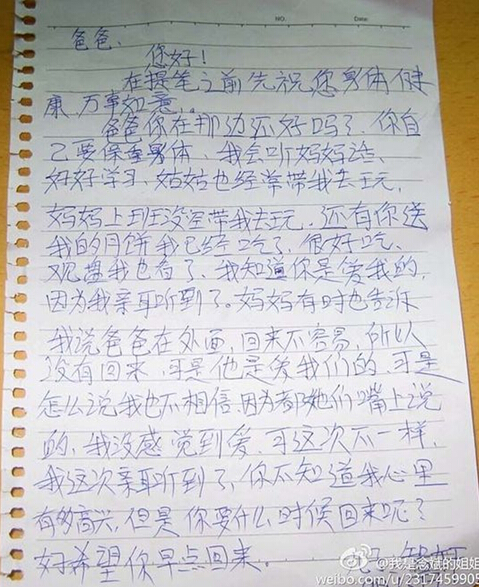 NO.
Date:
爸爸、
您好!
在提笔之前先祝您身体健
康 万事如意。
爸爸你在那边还好吗?你自
己要保重身体、我会听妈妈话、
好好学习、姑姑也经常带我去玩,
妈妈上班没空带我去玩、还有你送
我的月饼我已经吃了、很好吃、
光盘我也看了、我知道你是爱我的,
因为我亲耳听到了。妈妈有时也告诉
我说爸爸在外面,回来不容易,所以
没有回来,可是他是爱我们的,可是
怎么说我也不相信,因为都她们嘴上说
的,我没感觉到爱,可这次不一样,
我这次亲耳听到了,你不知道我心里
有多高兴,但是你要什么时候回来呢?
好希望你早点回来.
@我是念斌的姐姐
weibo.com/u/2317459905